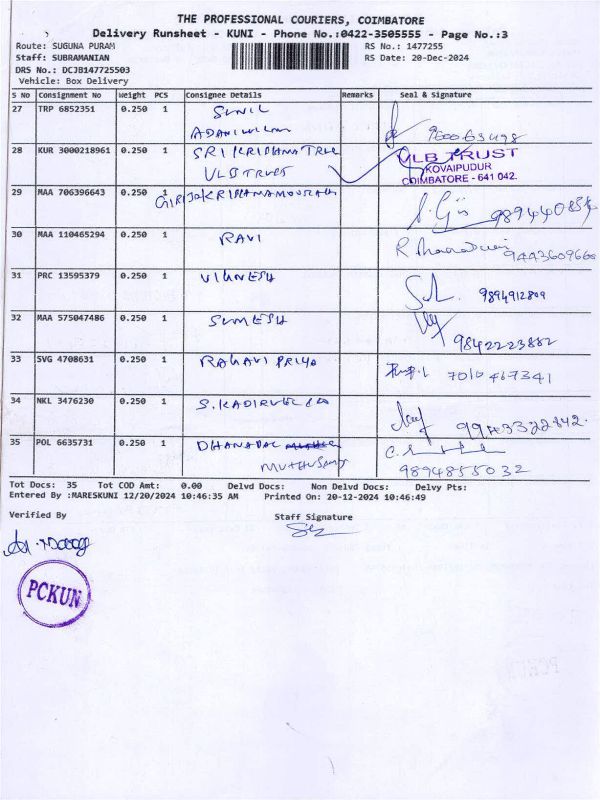 THE PROFESSIONAL COURIERS, COIMBATORE
Delivery Runsheet - KUNI - Phone No.:0422-3505555 - Page No.:3
Route: SUGUNA PURAM RS No.: 1477255
Staff: SUBRAMANIAN RS Date: 20-Dec-2024
DRS No.: DCJB147725503
Vehicle: Box Delivery
S No Consignment No Weight PCS Consignee Details Remarks Seal & Signature
27 TRP 6852351 0.250 1 SUNIL
28 KUR 3000218961 0.250 1 SRI KRISHNA
VLB TRUST VLB TRUST
KOVAIPUDUR
COIMBATORE - 641 042.
29 MAA 706396643 0.250 1
30 MAA 110465294 0.250 1 RAVI
9443609660
31 PRC 13595379 0.250 1 VIGNESH 9894912809
32 MAA 575047486 0.250 1 SUMESH
9842223882
33 SVG 4708631 0.250 1 RAGAVI PRIYA 7010 467341
34 NKL 3476230 0.250 1 S. KADIRVEL
9943322842.
35 POL 6635731 0.250 1 DHANAPAL
MUTHUSAMY 9894855032
Tot Docs: 35 Tot COD Amt: 0.00 Delvd Docs: Non Delvd Docs: Delvy Pts:
Entered By :MARESKUNI 12/20/2024 10:46:35 AM Printed On: 20-12-2024 10:46:49
Verified By Staff Signature
PCKUN